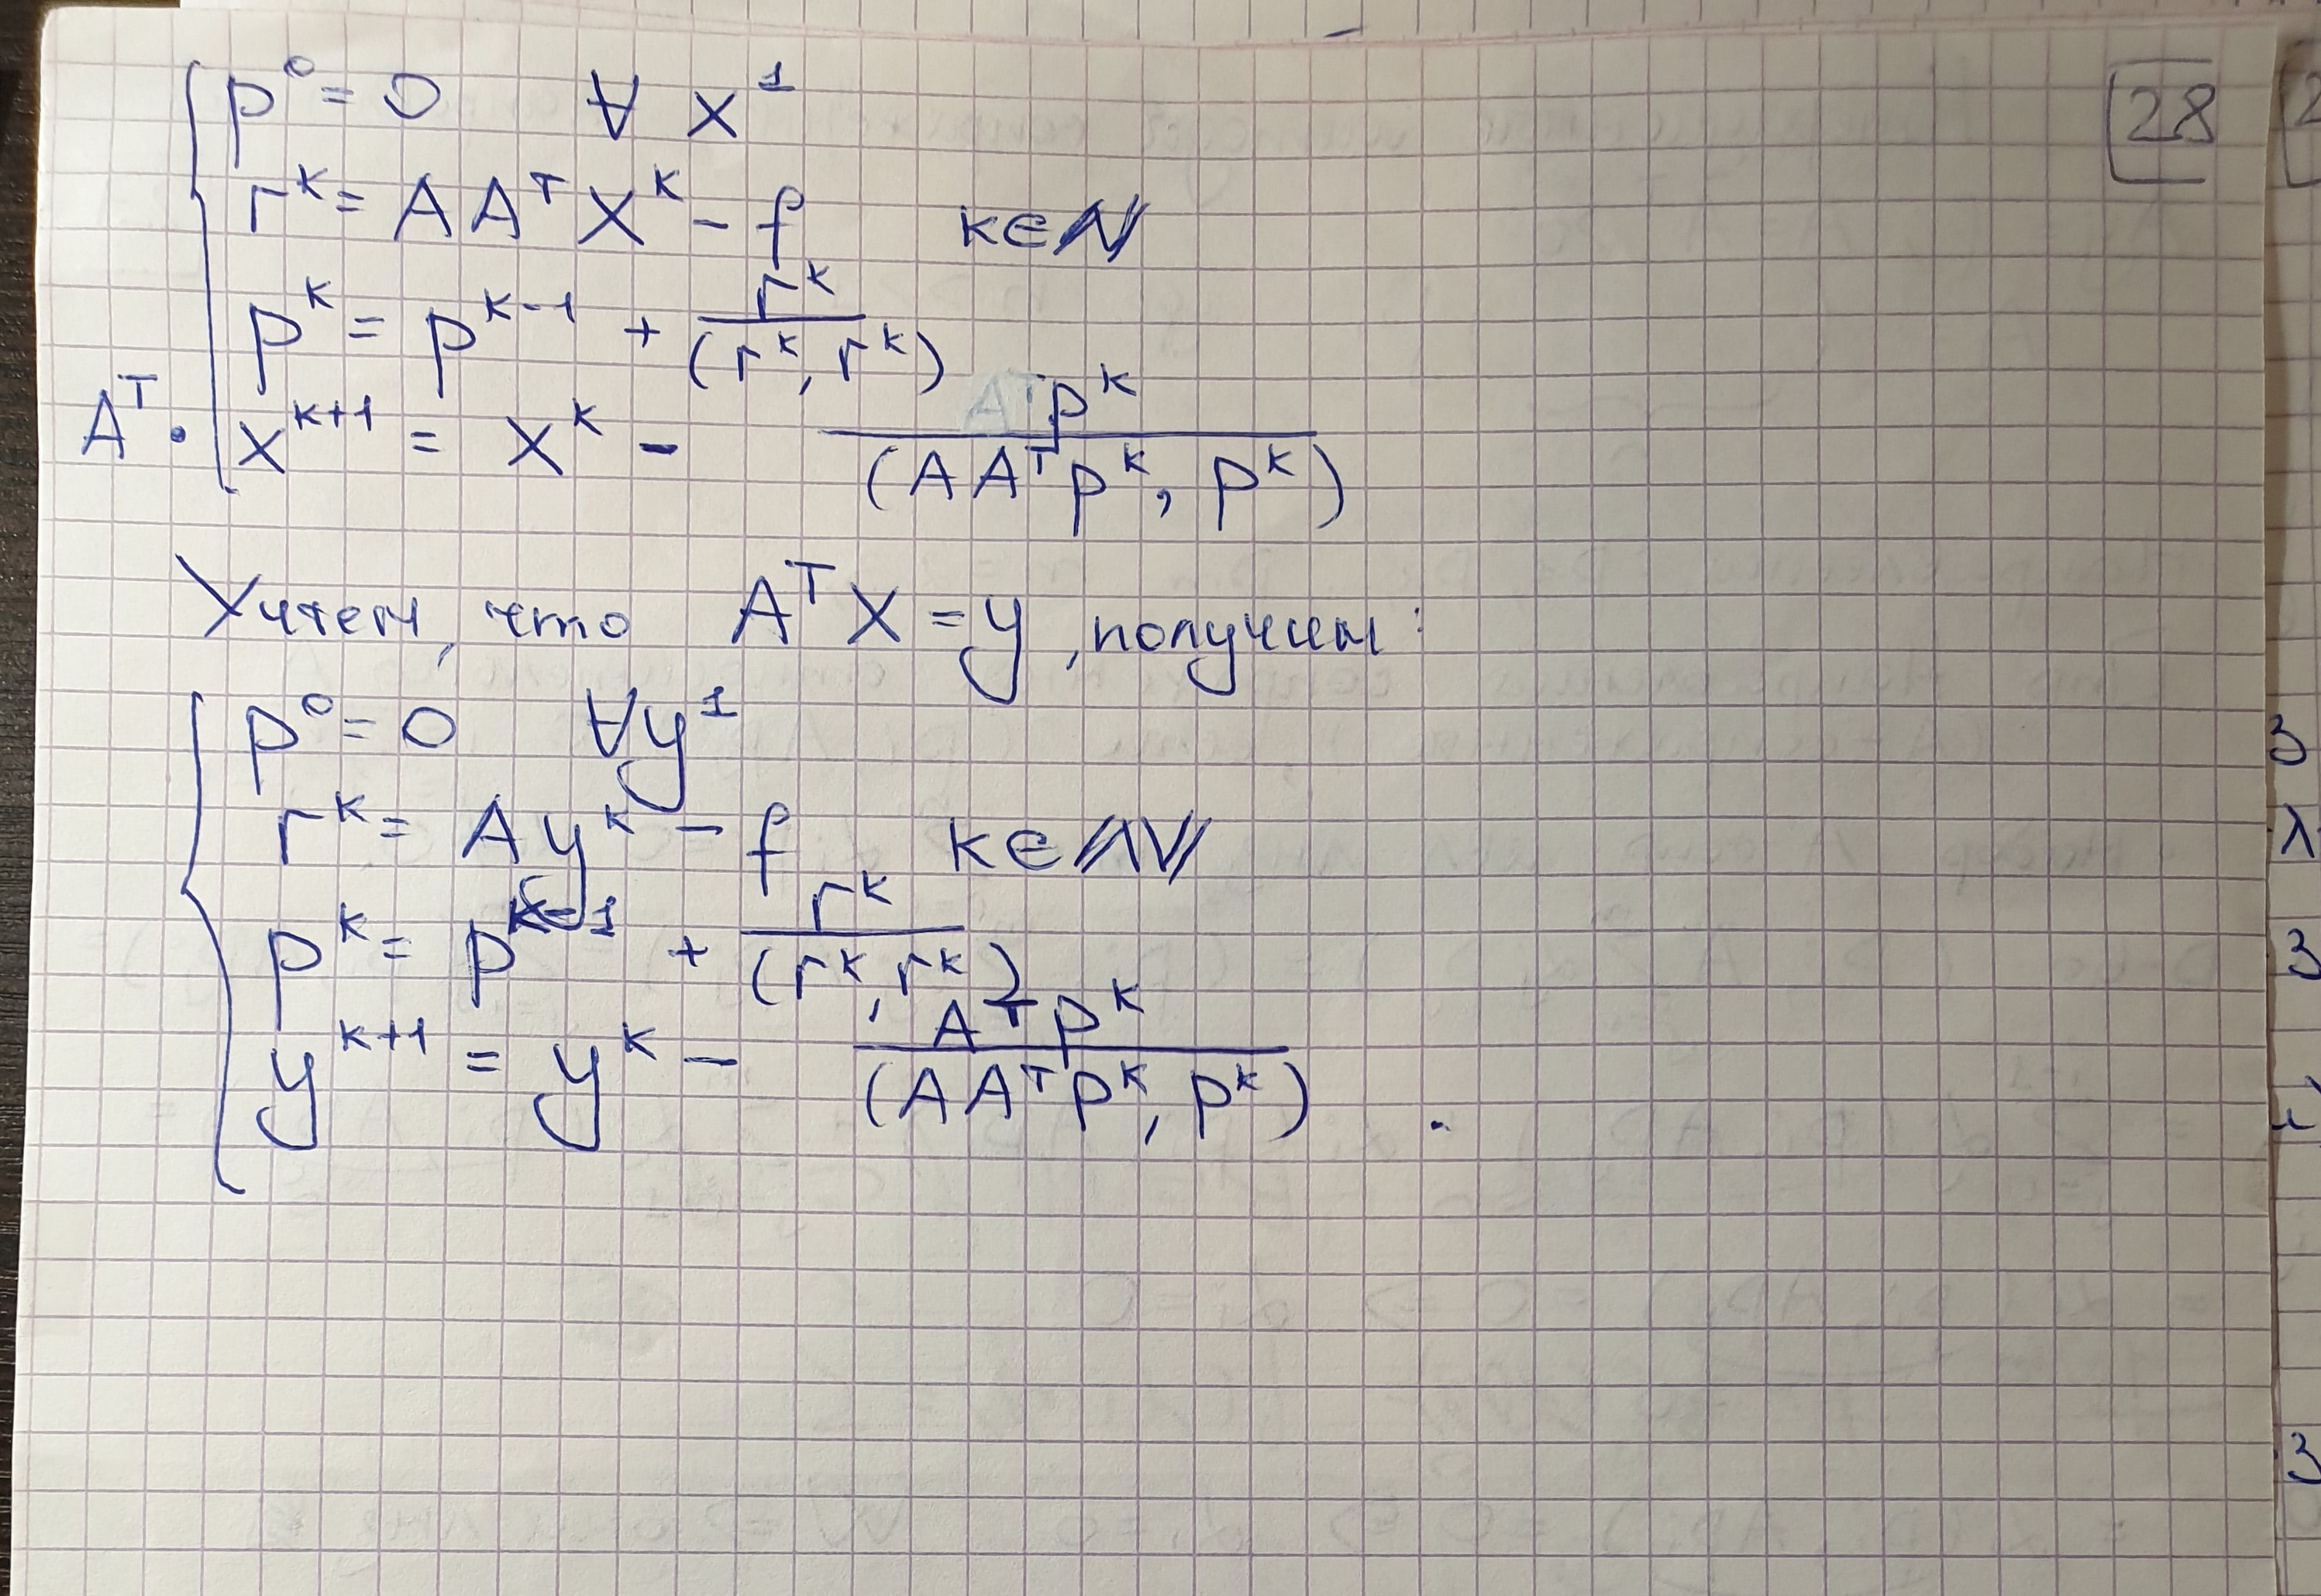 p⁰ = 0 ∀ x¹
28
rᵏ = A Aᵀ xᵏ - f k∈ℕ
pᵏ = pᵏ⁻¹ + rᵏ / (rᵏ, rᵏ)
Aᵀ · xᵏ⁺¹ = xᵏ - pᵏ / (A Aᵀ pᵏ, pᵏ)
Учтем, что Aᵀ x = y, получим:
p⁰ = 0 ∀ y¹
rᵏ = A yᵏ - f k∈ℕ
pᵏ = pᵏ⁻¹ + rᵏ / (rᵏ, rᵏ)
yᵏ⁺¹ = yᵏ - Aᵀ pᵏ / (A Aᵀ pᵏ, pᵏ) .